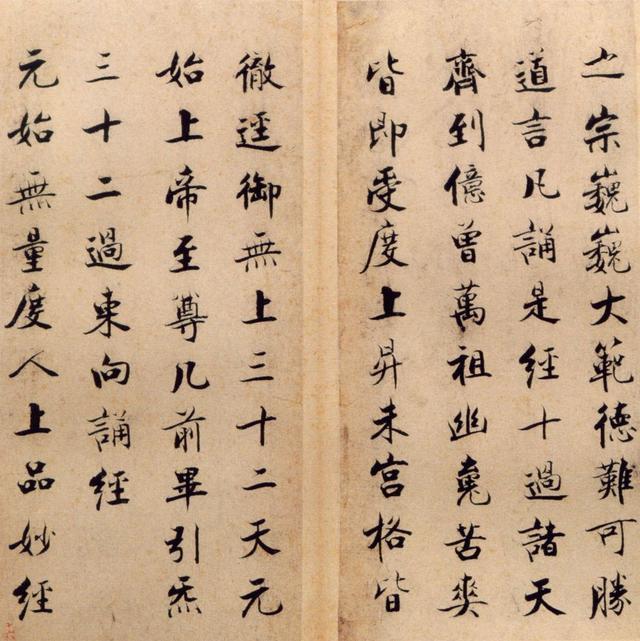 之宗巍巍大範德難可勝
道言凡誦是經十過諸天
齊到億曾萬祖幽魂苦爽
皆即受度上昇朱宫格皆
徹逕御無上三十二天元
始上帝至尊几前畢引炁
三十二過東向誦經
元始無量度人上品妙經
十六